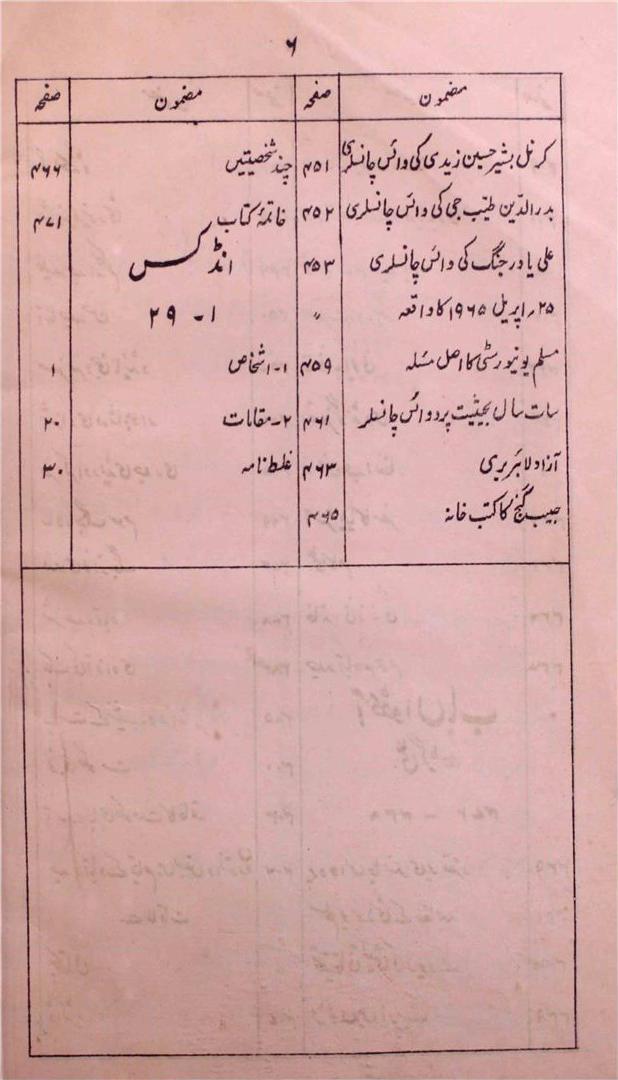 ۶
مضمون صفحہ مضمون صفحہ
کرنل بشیر حسین زیدی کی وائس چانسلری ۴۵۱
بدرالدّین طیّب جی کی وائس چانسلری ۴۵۲
علی یاور جنگ کی وائس چانسلری ۴۵۳
۲۵؍ اپریل ۱۹۶۵ کا واقعہ ״
مسلم یونیورسٹی کا اصل مسئلہ ۴۵۹
سات سال بحیثیت پرو وائس چانسلر ۴۶۱
آزاد لائبریری ۴۶۳
حبیب گنج کا کتب خانہ ۴۶۵
چند شخصیتیں ۴۶۶
خاتمۂ کتاب ۴۷۱
انڈکس
۱ - ۲۹
۱- اشخاص ۱
۲- مقامات ۲۰
غلط نامہ ۳۰